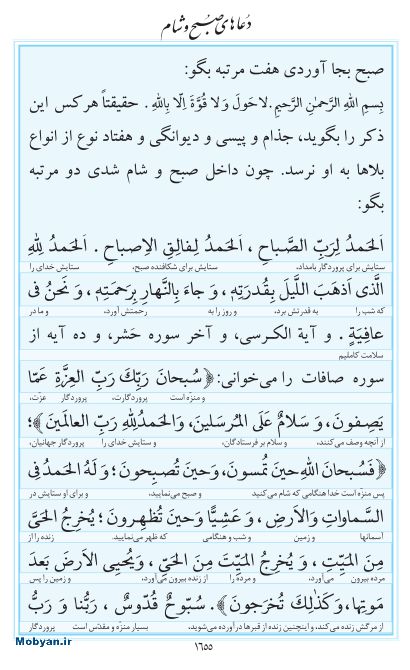 دعاهای صبح و شام
صبح بجا آوردی هفت مرتبه بگو:
بِسمِ اللهِ الرَّحمٰنِ الرَّحیمِ. لاحَولَ وَ لا قُوَّةَ اِلّا بِاللهِ . حقیقتاً هرکس این
ذکر را بگوید، جذام و پیسی و دیوانگی و هفتاد نوع از انواع
بلاها به او نرسد. چون داخل صبح و شام شدی دو مرتبه
بگو:
اَلحَمدُ لِرَبِّ الصَّباحِ ، اَلحَمدُ لِفالِقِ الاِصباحِ . اَلحَمدُ لِلهِ
ستایش برای پروردگار بامداد، ستایش برای شکافنده صبح، ستایش خدای را
الَّذی اَذهَبَ اللَّیلَ بِقُدرَتِهٖ ، وَ جاءَ بِالنَّهارِ بِرَحمَتِهٖ ، وَ نَحنُ فی
که شب را به قدرتش برد، و روز را به رحمتش آورد، و ما در
عافِیَةٍ . و آیة الکرسی، و آخر سوره حَشر، و ده آیه از
سلامت کاملیم
سوره صافات را می‌خوانی: ﴿سُبحانَ رَبِّكَ رَبِّ العِزَّةِ عَمّا
و منزه است پروردگارت، پروردگار عزّت،
یَصِفونَ، وَ سَلامٌ عَلَی المُرسَلینَ، وَالحَمدُلِلهِ رَبِّ العالَمینَ﴾؛
از آنچه وصف می‌کنند، و سلام بر فرستادگان، و ستایش خدای را پروردگار جهانیان،
﴿فَسُبحانَ اللهِ حینَ تُمسونَ، وَحینَ تُصبِحونَ؛ وَلَهُ الحَمدُ فِی
پس منزه است خدا هنگامی که شام می‌کنید و صبح می‌نمایید، و برای او ستایش در
السَّماواتِ وَالاَرضِ ، وَ عَشِیًّا وَحینَ تُظهِرونَ؛ یُخرِجُ الحَیَّ
آسمانها و زمین و شب و هنگامی که ظهر می‌نمایید. زنده را از
مِنَ المَیِّتِ ، وَ یُخرِجُ المَیِّتَ مِنَ الحَیِّ ، وَیُحیِی الاَرضَ بَعدَ
مرده بیرون می‌آورد، و مرده را از زنده بیرون می‌آورد، و زمین را پس
مَوتِها، وَکَذٰلِكَ تُخرَجونَ﴾. سُبّوحٌ قُدّوسٌ ، رَبُّنا وَ رَبُّ
از مرگش زنده می‌کند، و اینچنین زنده از قبرها درآورده می‌شوید. بسیار منزّه و مقدّس است پروردگار
Mobyan.ir
١٦٥٥